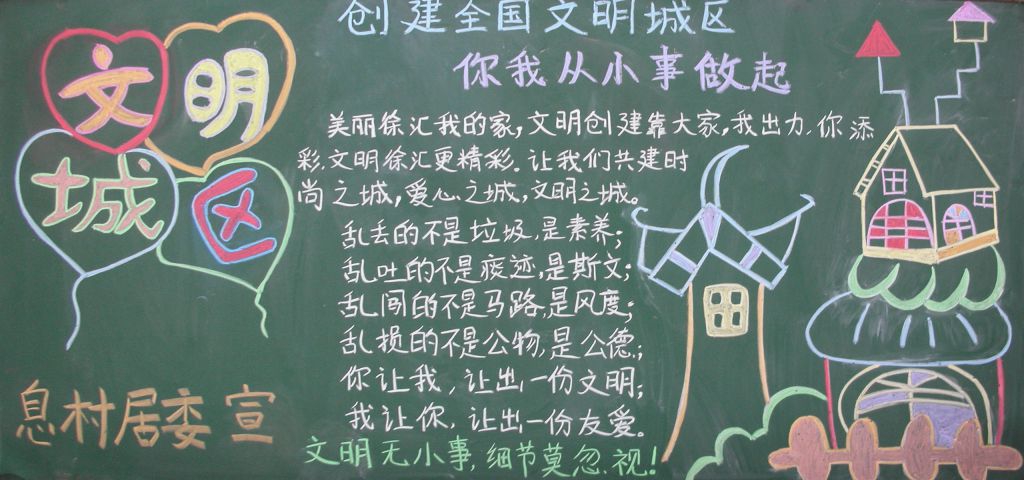 文明
城区
创建全国文明城区
你我从小事做起
美丽徐汇我的家,文明创建靠大家,我出力,你添
彩,文明徐汇更精彩。让我们共建时
尚之城,爱心之城,文明之城。
乱丢的不是垃圾,是素养;
乱吐的不是痰迹,是斯文;
乱闯的不是马路,是风度;
乱损的不是公物,是公德;
你让我,让出一份文明;
我让你,让出一份友爱。
文明无小事,细节莫忽视!
息村居委 宣